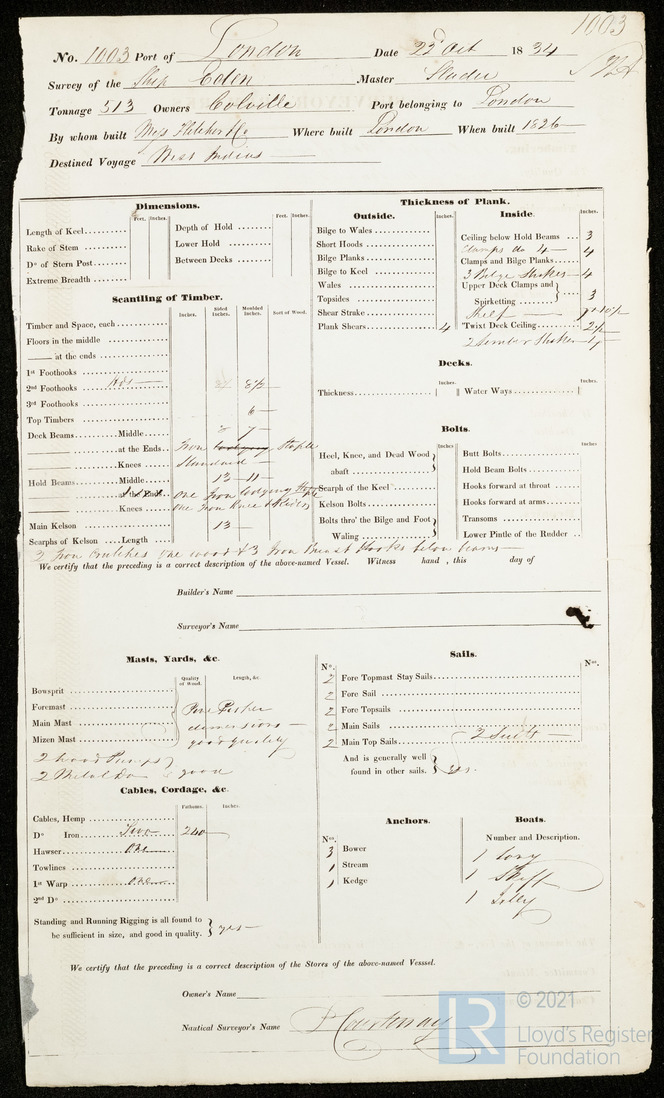 1003
No. 1003 Port of London Date 22d Oct 1834
Survey of the Ship Eden Master
Tonnage 513 Owners Colville Port belonging to London
By whom built Mess Fletcher & Co Where built London When built 1826
Destined Voyage West Indies
Dimensions.
Feet. Inches. Feet. Inches.
Length of Keel Depth of Hold
Rake of Stem Lower Hold
Do of Stern Post Between Decks
Extreme Breadth
Thickness of Plank.
Outside. Inches. Inside. Inches.
Bilge to Wales Ceiling below Hold Beams 3
Short Hoods Clamps do 4 4
Bilge Planks Clamps and Bilge Planks
Bilge to Keel 3 Bilge Strakes 4
Wales Upper Deck Clamps and
Topsides Spirketting 3
Shear Strake Shelf
Plank Shears 4 'Twixt Deck Ceiling 2½
2 Timber Strakes 4
Scantling of Timber.
Inches. Sided Inches. Moulded Inches. Sort of Wood.
Timber and Space, each
Floors in the middle
—— at the ends
1st Foothooks
2nd Foothooks 8½
3rd Foothooks
Top Timbers 6
Deck Beams Middle 7
—— at the Ends Iron lodging Staple
—— Knees Standard
Hold Beams Middle 13 11
—— at the Ends One Iron lodging Staple
—— Knees One Iron Knee
Main Kelson 13
Scarphs of Kelson Length
2 Iron Crutches one wood & 3 Iron Breast Hooks below beams
Decks.
Inches. Inches.
Thickness Water Ways
Bolts.
Inches Inches
Heel, Knee, and Dead Wood abaft Butt Bolts
Hold Beam Bolts
Scarph of the Keel Hooks forward at throat
Kelson Bolts Hooks forward at arms
Bolts thro' the Bilge and Foot Waling Transoms
Lower Pintle of the Rudder
We certify that the preceding is a correct description of the above-named Vessel. Witness hand , this day of
Builder's Name
Surveyor's Name
Masts, Yards, &c.
Quality of Wood. Length, &c.
Bowsprit
Foremast
Main Mast dimensions
Mizen Mast good quality
2 wood Pumps
2 Metal Do good
Sails.
No. No.
2 Fore Topmast Stay Sails
2 Fore Sail
2 Fore Topsails
2 Main Sails
2 Main Top Sails 2 Suits
And is generally well
found in other sails. yes.
Cables, Cordage, &c.
Fathoms. Inches.
Cables, Hemp
Do Iron Two 240
Hawser One
Towlines
1st Warp One
2nd Do
Standing and Running Rigging is all found to
be sufficient in size, and good in quality. yes
Anchors.
No.
3 Bower
1 Stream
1 Kedge
Boats.
Number and Description.
1 Long
1 Skiff
1 Jolly
We certify that the preceding is a correct description of the Stores of the above-named Vesssel.
Owner's Name
Nautical Surveyor's Name Courtenay
LR © 2021
Lloyd's Register
Foundation